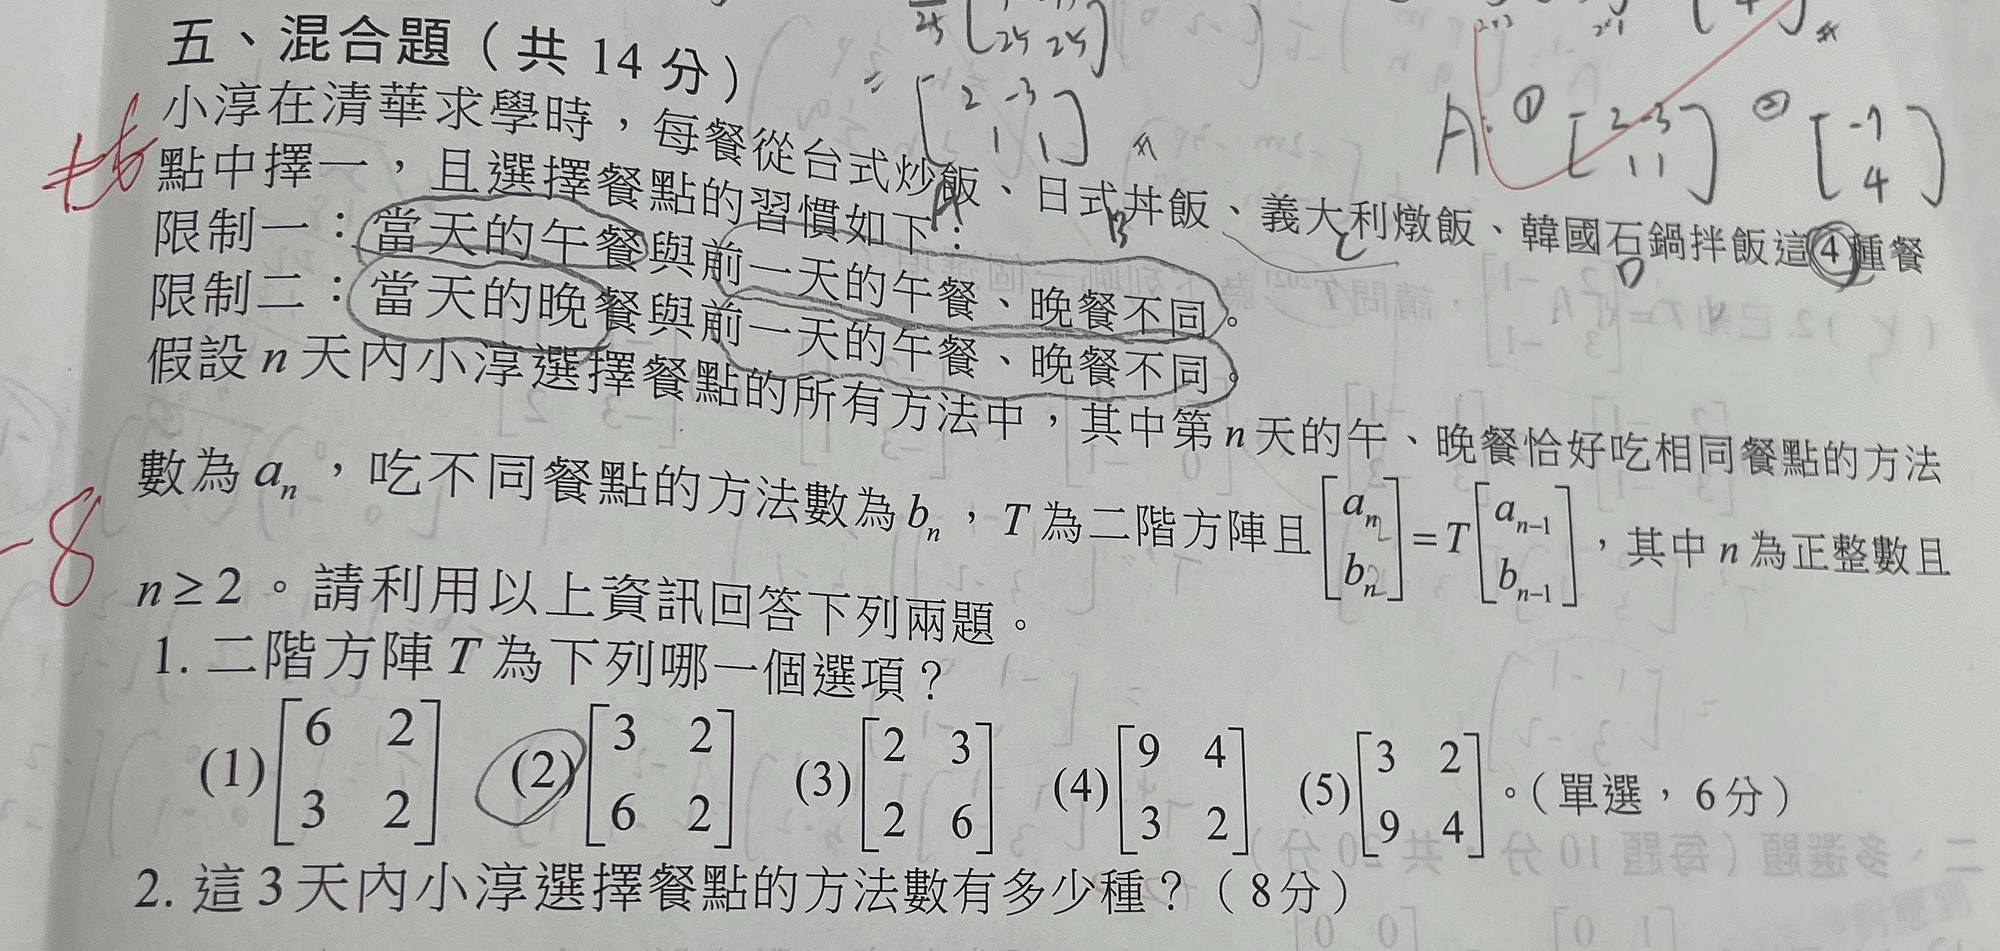 五、混合題（共 14 分）
小淳在清華求學時，每餐從台式炒飯、日式丼飯、義大利燉飯、韓國石鍋拌飯這④種餐
點中擇一，且選擇餐點的習慣如下：
限制一：當天的午餐與前一天的午餐、晚餐不同。
限制二：當天的晚餐與前一天的午餐、晚餐不同。
假設 n 天內小淳選擇餐點的所有方法中，其中第 n 天的午、晚餐恰好吃相同餐點的方法
數為 aₙ，吃不同餐點的方法數為 bₙ，T 為二階方陣且 [aₙ bₙ] = T [aₙ₋₁ bₙ₋₁]，其中 n 為正整數且
n ≥ 2。請利用以上資訊回答下列兩題。
1. 二階方陣 T 為下列哪一個選項？
(1) [6 2 / 3 2] (2) [3 2 / 6 2] (3) [2 3 / 2 6] (4) [9 4 / 3 2] (5) [3 2 / 9 4]。（單選，6 分）
2. 這 3 天內小淳選擇餐點的方法數有多少種？（8 分）
= [2 -3 / 1 1]
A: ① [2 -3 / 1 1] ② [-7 / 4]
A
B
C
D
-8